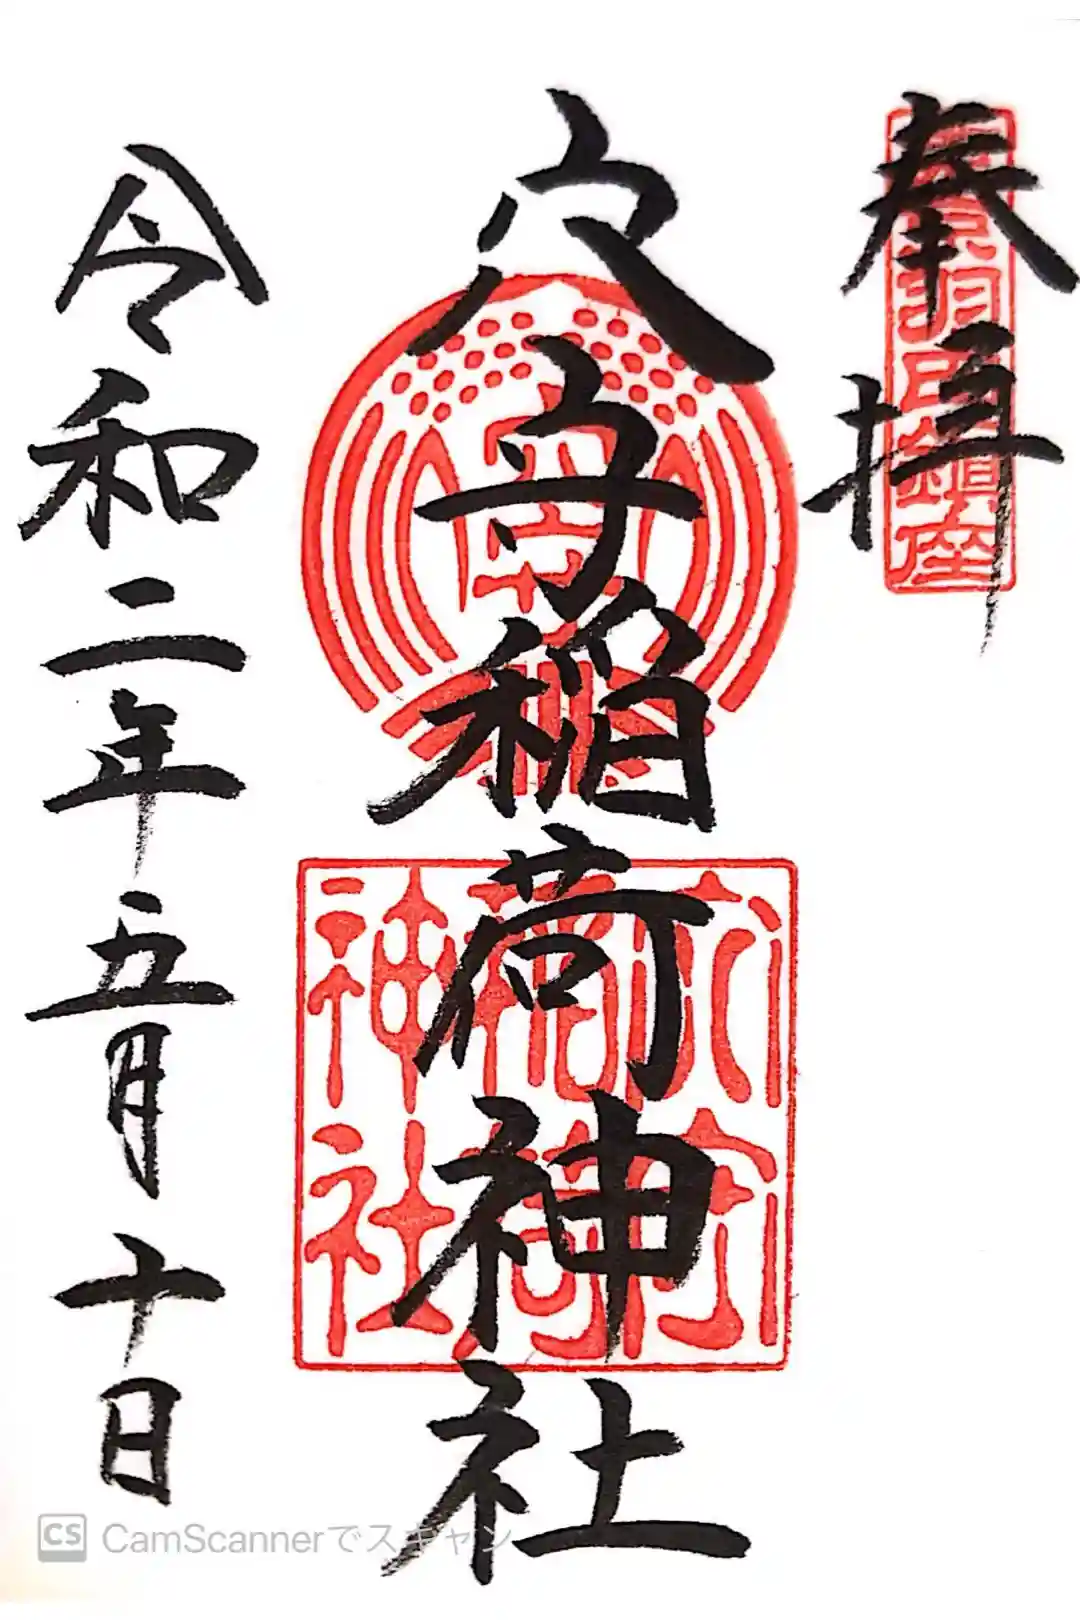 奉拝
東京羽田鎮座
穴守稲荷神社
穴守
穴守
稲荷
神社
令和二年五月十日
CS CamScannerでスキャン